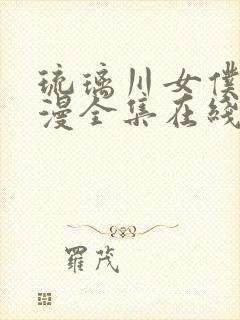 琉璃川女僕
漫全集在綫
羅茂